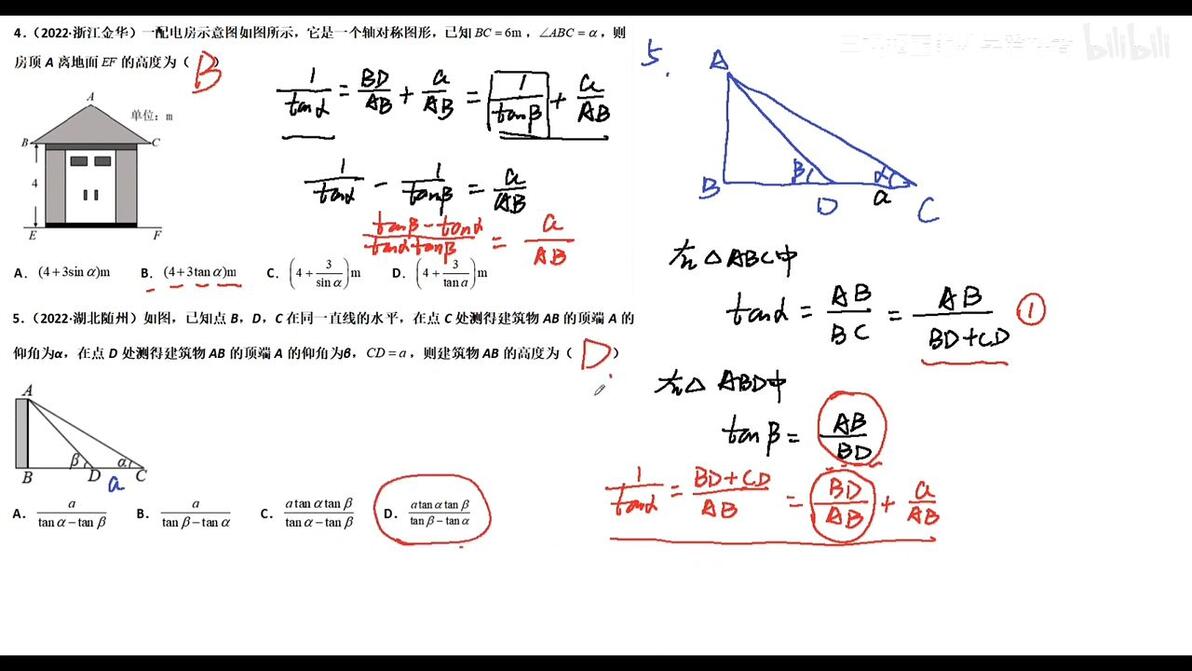 4．（2022·浙江金华）一配电房示意图如图所示，它是一个轴对称图形，已知 BC = 6m，∠ABC = α，则
房顶 A 离地面 EF 的高度为（ B ）
A
单位：m
B C
4
E F
A．(4+3sin α)m B．(4+3tan α)m C．(4+3/sin α)m D．(4+3/tan α)m
5．（2022·湖北随州）如图，已知点 B，D，C 在同一直线的水平，在点 C 处测得建筑物 AB 的顶端 A 的
仰角为α，在点 D 处测得建筑物 AB 的顶端 A 的仰角为β，CD = a，则建筑物 AB 的高度为（ D ）
A
β α
B D C
a
A．a/(tan α − tan β) B．a/(tan β − tan α) C．a tan α tan β/(tan α − tan β) D．a tan α tan β/(tan β − tan α)
1/tanα = BD/AB + a/AB = 1/tanβ + a/AB
1/tanα − 1/tanβ = a/AB
(tanβ − tanα)/(tanα tanβ) = a/AB
5.
A
β α
B D a C
在△ABC中
tanα = AB/BC = AB/(BD+CD) ①
在△ABD中
tanβ = AB/BD
1/tanα = (BD+CD)/AB = BD/AB + a/AB
bilibili